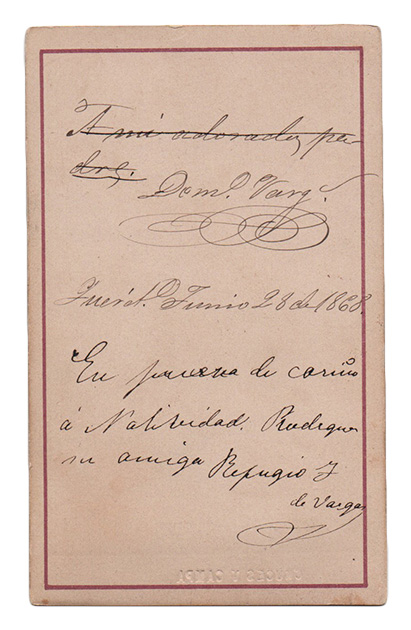 A mi adorado pa-
dre.
Dom.º Varg.s
Querét.º Junio 28 de 1868.
En prueva de cariño
á Natividad. Rodrigues
su amiga Refugio J
de Vargas
CRUCES Y CAMPA